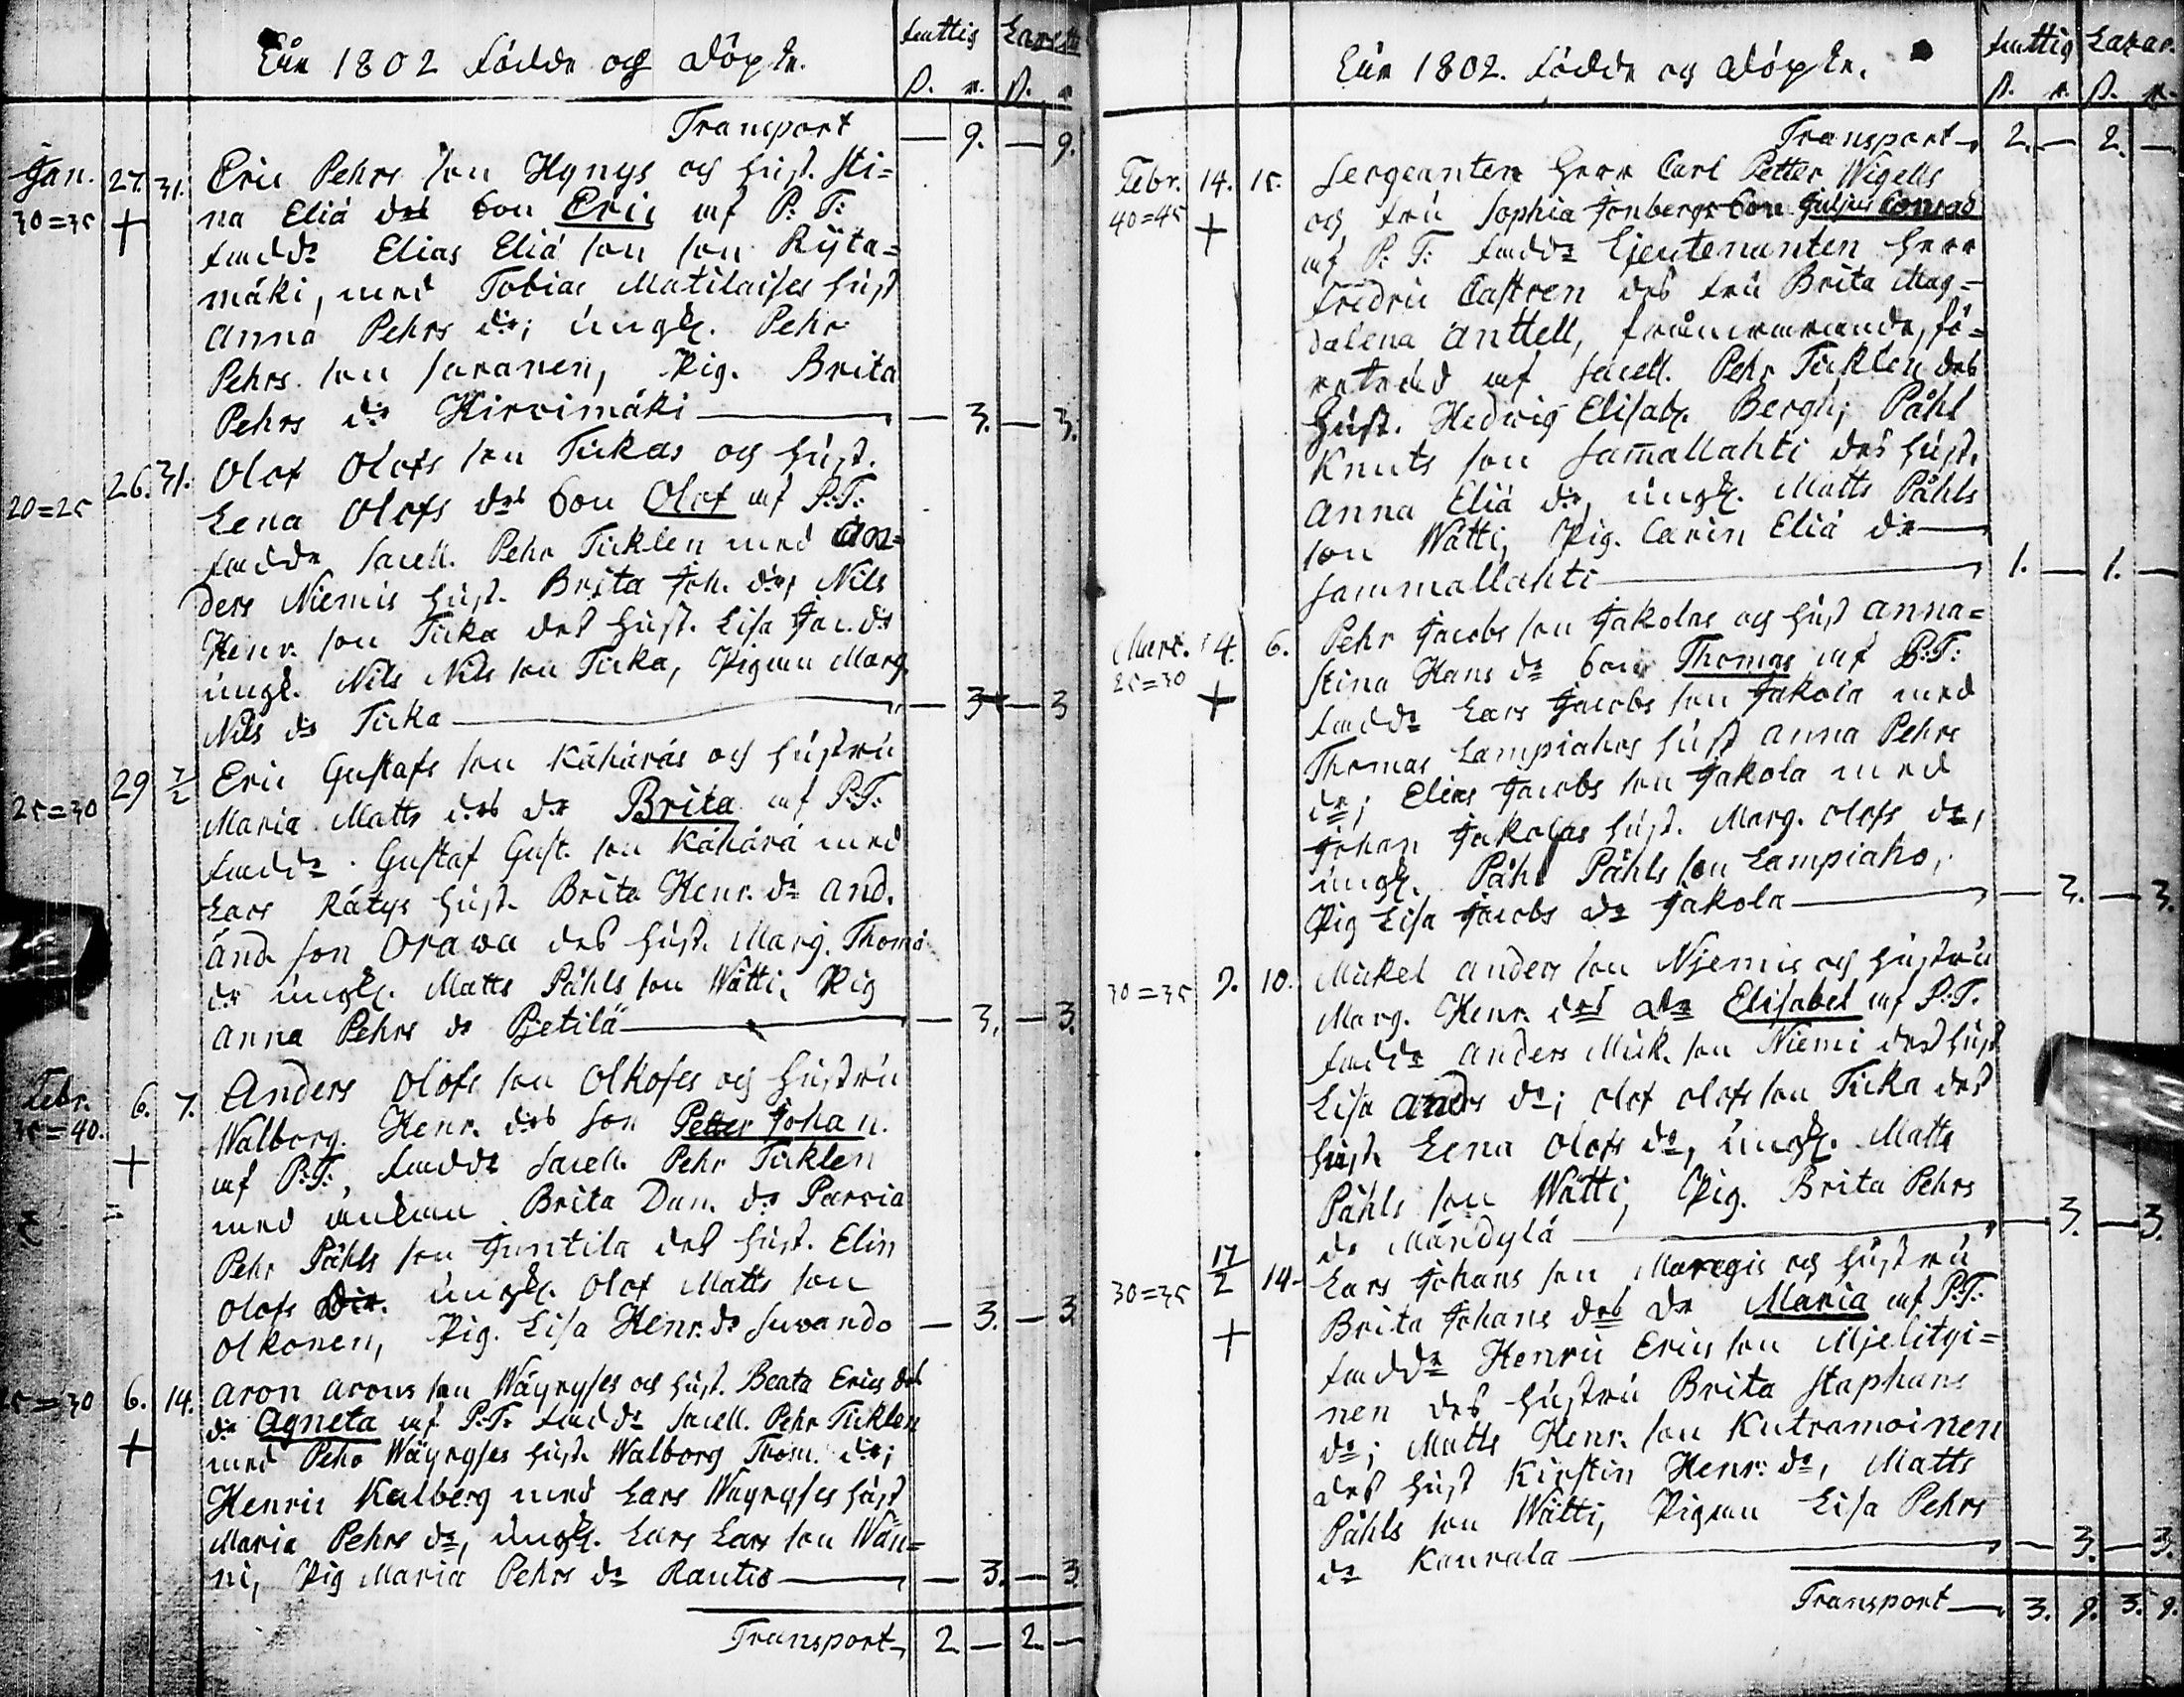 Åår 1802 födde och döpte.
fattig Lazar
ß. r. ß. r.
Transport — 9. — 9.
Jan. 27. 31. Eric Pehrs son Hynys och hust. Sti=
30=35 + na Eliä drs son Eric af P. T.
faddr Elias Eliä son Ryta=
mäki, med Tobias Matilaises hust
Anna Pehrs dr; ungk. Pehr
Pehrs son Saranen, Pig. Brita
Pehrs dr Hirvimäki — 3. — 3.
26. 31. Olof Olofs son Tickas och hust.
20=25 Lena Olofs drs son Olof af P. T.
faddr Sacell. Pehr Ticklen med An=
ders Niemis hust. Brita Joh. dr, Nils
Henr. son Ticka des hust. Lisa Jac. dr
ungk. Nils Nils son Ticka, Pigan Marg.
Nils dr Ticka — 3 — 3
29 7/2 Eric Gustafs son Kähäräs och hustru
25=30 Maria Matts drs dr Brita af P. T.
faddr. Gustaf Gust. son Kähärä med
Lars Rätys hust. Brita Henr. dr And.
And. son Orawa des hust. Marg. Thomä
dr ungk. Matts Påhls son Wätti, Pig
Anna Pehrs dr Pjetilä — 3. — 3.
Febr. 6. 7. Anders Olofs son Olkoses och hustru
35=40. Walborg. Henr. drs son Petter Johan.
+ af P. T., faddr Sacell. Pehr Ticklen
med enkan Brita Dan. dr Parvia
Pehr Påhls son Juntila des hust. Elin
Olofs Dr. ungk. Olof Matts son
Olkonen, Pig. Lisa Henr. dr Suvando — 3. — 3
25=30 6. 14. Aron Arons son Wäyryses och hust. Beata Erics drs
+ dr Agneta af P. T. faddr Sacell. Pehr Ticklen
med Pehr Wäyryses hust. Walborg Thom. dr;
Henric Kalberg med Lars Wäyryses hust
Maria Pehrs dr, ungk. Lars Lars son Wän=
ni, Pig Maria Pehrs dr Rautio — 3. — 3
Transport 2 — 2 —
Åår 1802. födde och döpte.
fattig Lazar.
ß. r. ß. r.
Transport 2. — 2. —
Febr. 14. 15. Sergeanten Herr Carl Petter Wigells
40=45 + och fru Sophia Jonbergs son Julius Conrad
af P. T. faddr Lieutenanten Herr
Fredric Castren des fru Brita Mag=
dalena Anttell, frånvarande, fö=
reträdd af Sacell. Pehr Ticklen des
hust. Hedwig Elisab. Bergh; Påhl
Knuts son Sammallahti des hust.
Anna Eliä dr, ungk. Matts Påhls
son Wätti, Pig. Carin Eliä dr
Sammallahti — 1. — 1. —
Mart. 4. 6. Pehr Jacobs son Jakolas och hust Anna=
25=30 stina Hans dr son Thomas af P. T.
+ faddr Lars Jacobs son Jakola med
Thomas Lampiahos hust Anna Pehrs
dr; Elias Jacobs son Jakola med
Johan Jakolas hust. Marg. Olofs dr,
ungk. Påhl Påhls son Lampiaho,
Pig Lisa Jacobs dr Jakola — 3. — 3.
30=35 9. 10. Mickel Anders son Njemis och hustru
Marg. Henr. drs dr Elisabet af P. T.
faddr Anders Mick. son Niemi des hust
Lisa Anders dr; Olof Olofs son Ticka des
hust. Lena Olofs dr, ungk. Matts
Påhls son Wätti, Pig. Brita Pehrs
dr Mändylä — 3. — 3.
30=35 17/2 14. Lars Johans son och hustru
+ Brita Johans drs dr Maria af P. T.
faddr Henric Erics son Mjelityi=
nen des hustru Brita Staphans
dr; Matts Henr. son Kutramoinen
des hust Kirstin Henr. dr, Matts
Påhls son Wätti, Pigan Lisa Pehrs
dr Kaurala — 3. — 3.
Transport 3. 9. 3. 9.